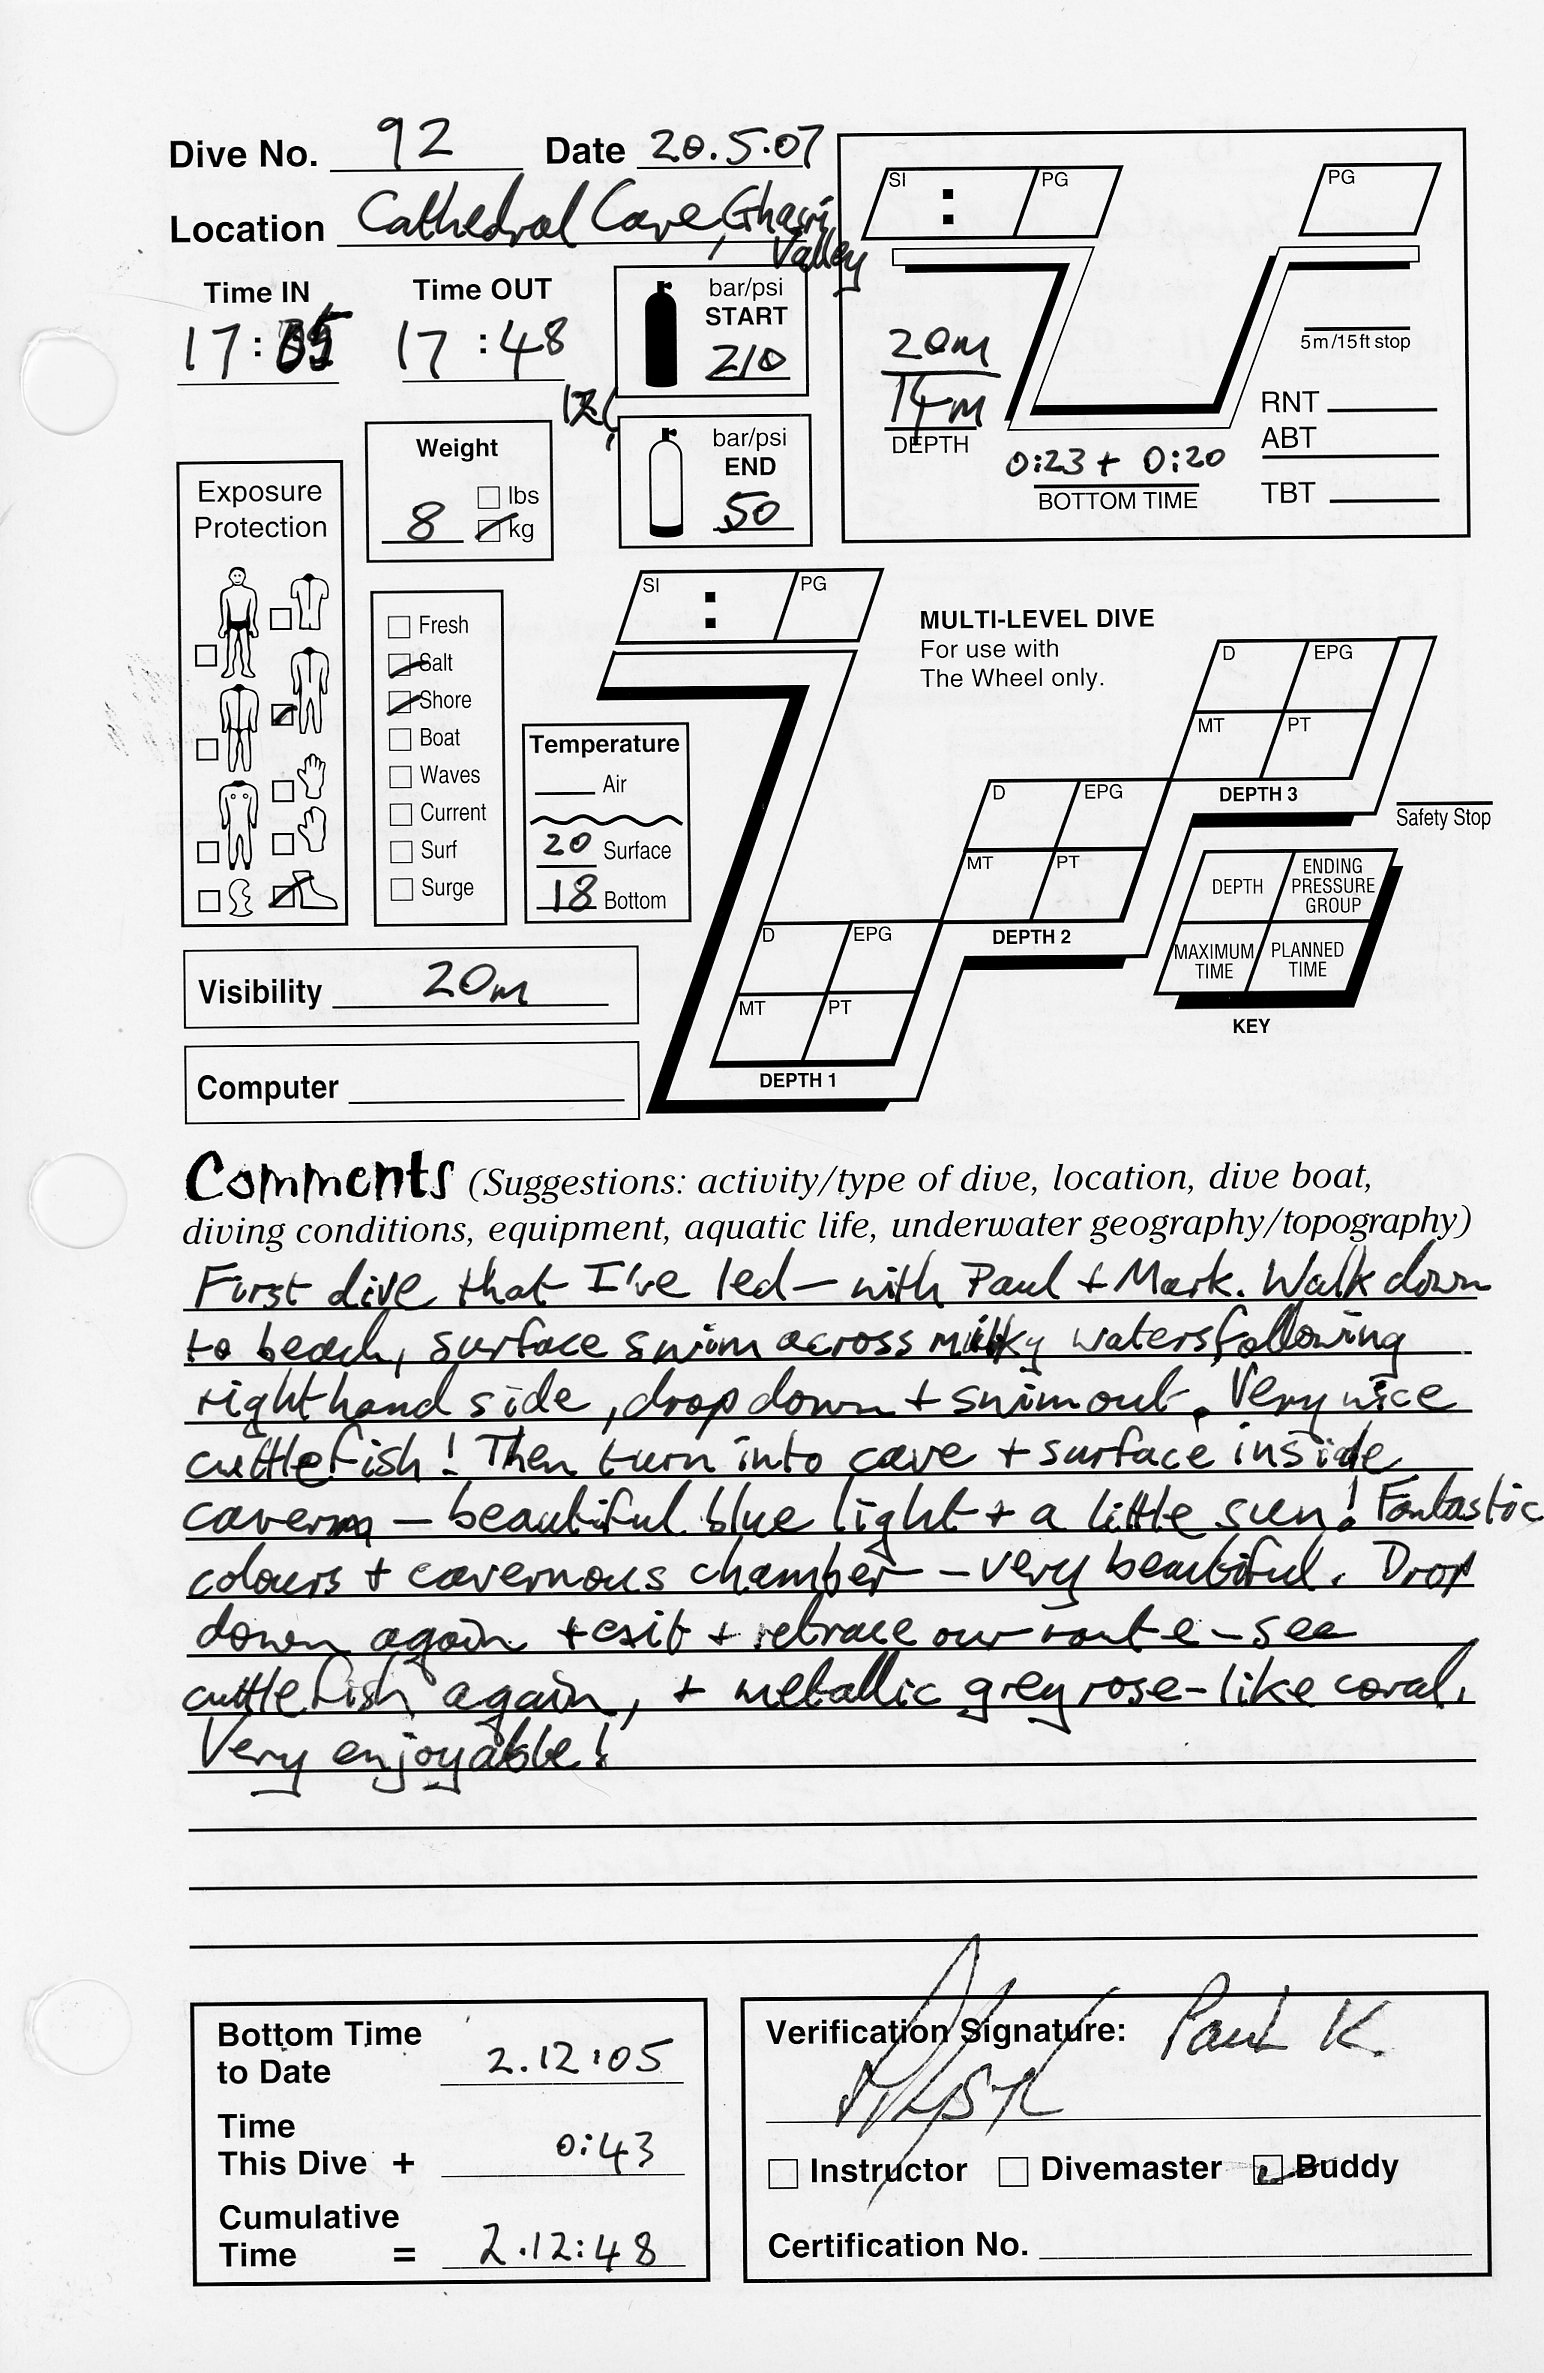 Dive No. 92 Date 20.5.07
Location Cathedral Cave, Ghasri
Valley
Time IN Time OUT
17:05 17:48
bar/psi
START
210
12l
bar/psi
END
50
Weight
8 lbs
kg
SI : PG PG
20m
14m
DEPTH
0:23 + 0:20
BOTTOM TIME
5m/15ft stop
RNT
ABT
TBT
Exposure
Protection
Fresh
Salt
Shore
Boat
Waves
Current
Surf
Surge
Temperature
Air
20 Surface
18 Bottom
SI : PG
MULTI-LEVEL DIVE
For use with
The Wheel only.
D EPG
MT PT
DEPTH 3
Safety Stop
D EPG
MT PT
DEPTH 2
D EPG
MT PT
DEPTH 1
DEPTH ENDING PRESSURE GROUP
MAXIMUM TIME PLANNED TIME
KEY
Visibility 20m
Computer
Comments (Suggestions: activity/type of dive, location, dive boat,
diving conditions, equipment, aquatic life, underwater geography/topography)
First dive that I've led – with Paul + Mark. Walk down
to beach, surface swim across milky waters following
right hand side, drop down + swim out. Very nice
cuttlefish! Then turn into cave + surface inside
cavern – beautiful blue light + a little sun! Fantastic
colours + cavernous chamber – very beautiful. Drop
down again + exit + retrace our route – see
cuttlefish again, + metallic grey rose-like coral.
Very enjoyable!
Bottom Time
to Date 2.12:05
Time
This Dive + 0:43
Cumulative
Time = 2.12:48
Verification Signature: Paul K.
Instructor Divemaster Buddy
Certification No.